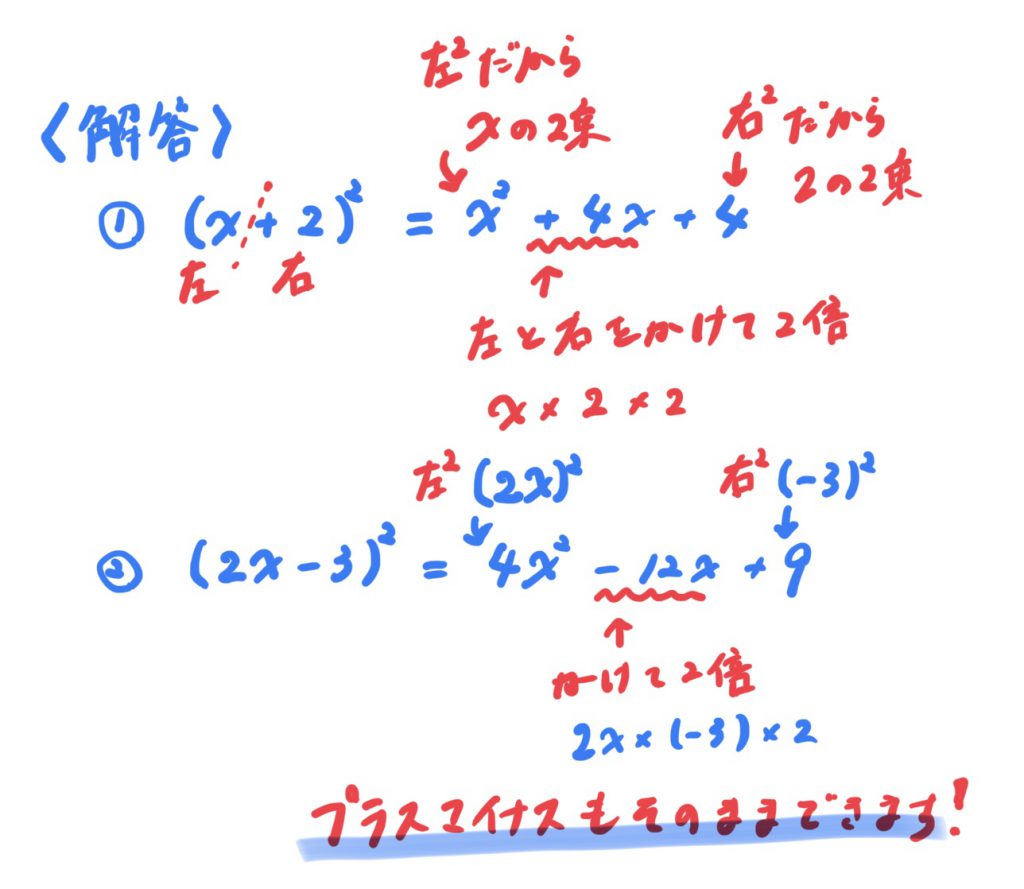 〈解答〉
左²だから
xの2乗
右²だから
2の2乗
① (x+2)² = x² + 4x + 4
左 右
左と右をかけて2倍
x × 2 × 2
左² (2x)² 右² (-3)²
② (2x-3)² = 4x² - 12x + 9
かけて2倍
2x × (-3) × 2
プラスマイナスもそのままできます!